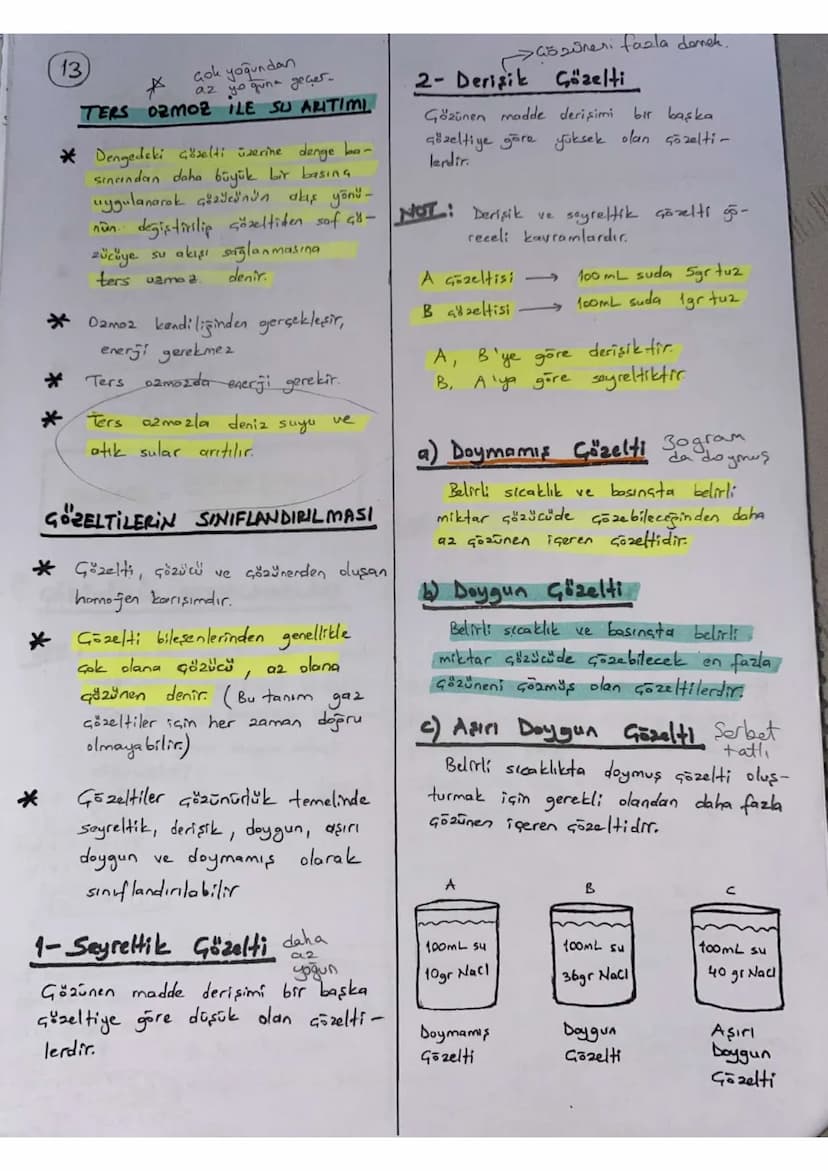 13
Çok yoğundan
az yoğuna geçer.
TERS OZMOZ İLE SU ARITIMI
* Dengedeki çözelti üzerine denge ba-
sıncından daha büyük bir basınç
uygulanarak çözücünün akış yönü-
nün değiştirilip çözeltiden saf çö-
zücüye su akışı sağlanmasına
ters ozmoz denir.
* Ozmoz kendiliğinden gerçekleşir,
enerji gerekmez
* Ters ozmozda enerji gerekir.
* Ters ozmozla deniz suyu ve
atık sular arıtılır.
ÇÖZELTİLERİN SINIFLANDIRILMASI
* Çözelti, çözücü ve çözünenden oluşan
homojen karışımdır.
* Çözelti bileşenlerinden genellikle
çok olana çözücü, az olana
çözünen denir. (Bu tanım gaz
çözeltiler için her zaman doğru
olmayabilir.)
* Çözeltiler çözünürlük temelinde
seyreltik, derişik, doygun, aşırı
doygun ve doymamış olarak
sınıflandırılabilir
1- Seyreltik Çözelti daha
az
yoğun
Çözünen madde derişimi bir başka
çözeltiye göre düşük olan çözelti-
lerdir.
→ Çözüneni fazla demek.
2- Derişik Çözelti
Çözünen madde derişimi bir başka
çözeltiye göre yüksek olan çözelti-
lerdir.
NOT: Derişik ve seyreltik çözelti gö-
receli kavramlardır.
A çözeltisi → 100 mL suda 5gr tuz
B çözeltisi → 100mL suda 1gr tuz
A, B'ye göre derişiktir.
B, A'ya göre seyreltiktir
a) Doymamış Çözelti 30gram
da doymuş
Belirli sıcaklık ve basınçta belirli
miktar çözücüde çözebileceğinden daha
az çözünen içeren çözeltidir.
b) Doygun Çözelti
Belirli sıcaklık ve basınçta belirli
miktar çözücüde çözebilecek en fazla
çözüneni çözmüş olan çözeltilerdir.
c) Aşırı Doygun Çözelti Şerbet
tatlı
Belirli sıcaklıkta doymuş çözelti oluş-
turmak için gerekli olandan daha fazla
çözünen içeren çözeltidir.
A B C
100mL su 100mL su 100mL su
10gr NaCl 36gr NaCl 40 gr NaCl
Doymamış Doygun Aşırı
Çözelti Çözelti Doygun
Çözelti